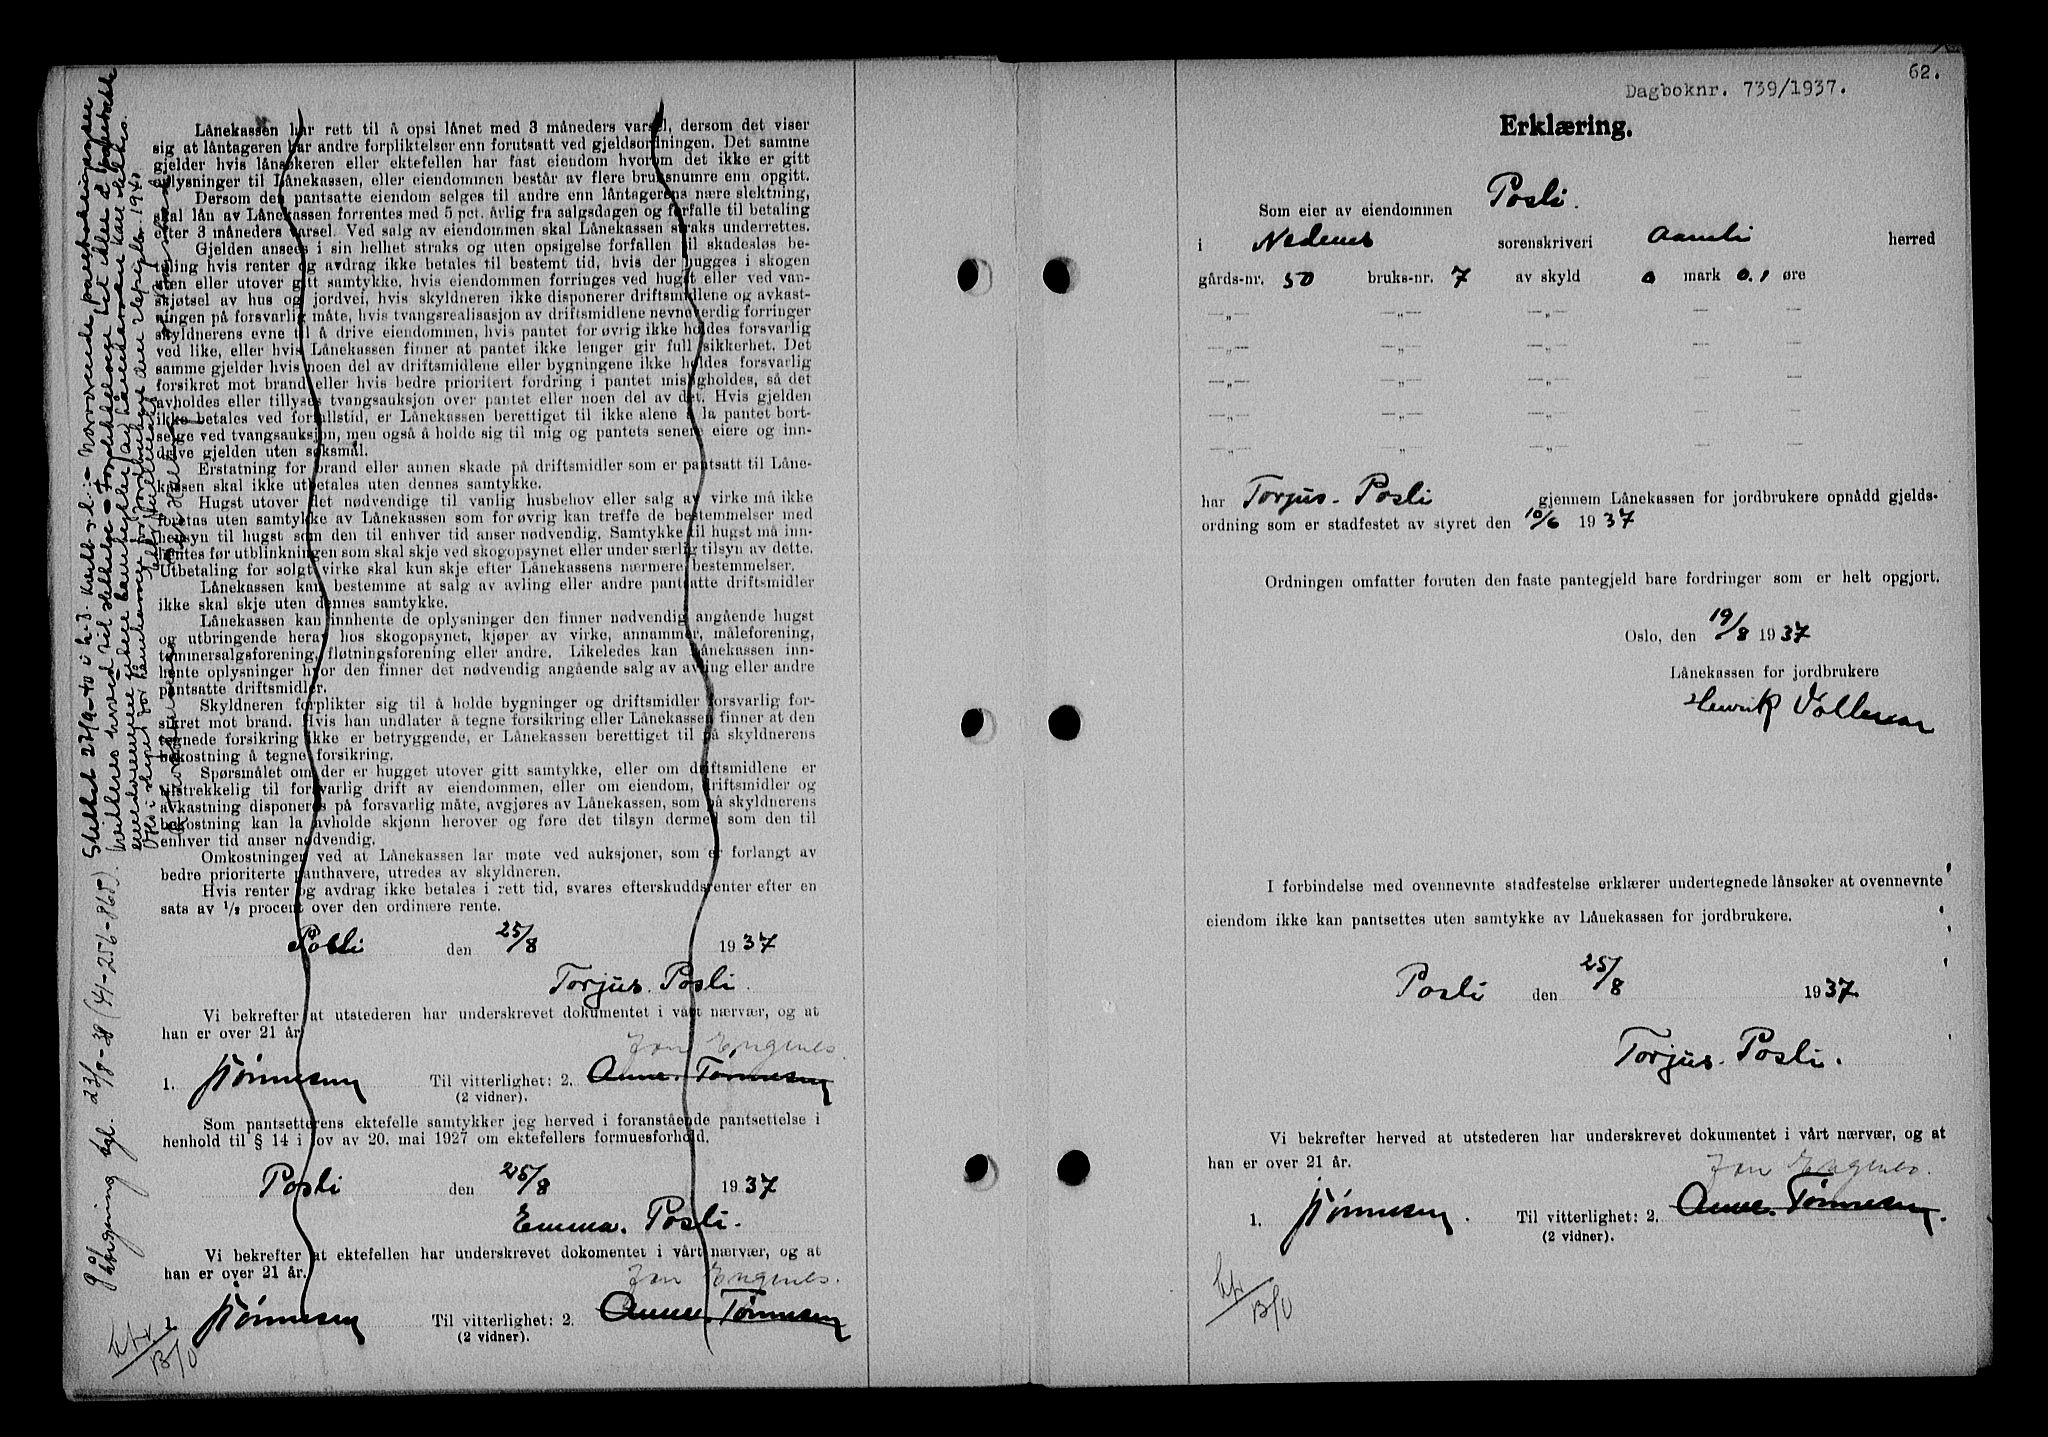 Lånekassen har rett til å opsi lånet med 3 måneders varsel, dersom det viser
sig at låntageren har andre forpliktelser enn forutsatt ved gjeldsordningen. Det samme
gjelder hvis lånsøkeren eller ektefellen har fast eiendom hvorom det ikke er gitt
oplysninger til Lånekassen, eller eiendommen består av flere bruksnumre enn opgitt.
Dersom den pantsatte eiendom selges til andre enn låntagerens nære slektning,
skal lån av Lånekassen forrentes med 5 pct. årlig fra salgsdagen og forfalle til betaling
efter 3 måneders varsel. Ved salg av eiendommen skal Lånekassen straks underrettes.
Gjelden ansees i sin helhet straks og uten opsigelse forfallen til skadesløs be-
taling hvis renter og avdrag ikke betales til bestemt tid, hvis der hugges i skogen
uten eller utover gitt samtykke, hvis eiendommen forringes ved hugst eller ved van-
skjøtsel av hus og jordvei, hvis skyldneren ikke disponerer driftsmidlene og avkast-
ningen på forsvarlig måte, hvis tvangsrealisasjon av driftsmidlene nevneverdig forringer
skyldnerens evne til å drive eiendommen, hvis pantet for øvrig ikke holdes forsvarlig
ved like, eller hvis Lånekassen finner at pantet ikke lenger gir full sikkerhet. Det
samme gjelder hvis noen del av driftsmidlene eller bygningene ikke holdes forsvarlig
forsikret mot brand eller hvis bedre prioritert fordring i pantet misligholdes, så det
avholdes eller tillyses tvangsauksjon over pantet eller noen del av det. Hvis gjelden
ikke betales ved forfallstid, er Lånekassen berettiget til ikke alene å la pantet bort-
selge ved tvangsauksjon, men også å holde sig til mig og pantets senere eiere og inn-
drive gjelden uten søksmål.
Erstatning for brand eller annen skade på driftsmidler som er pantsatt til Låne-
kassen skal ikke utbetales uten dennes samtykke.
Hugst utover det nødvendige til vanlig husbehov eller salg av virke må ikke
foretas uten samtykke av Lånekassen som for øvrig kan treffe de bestemmelser med
hensyn til hugst som den til enhver tid anser nødvendig. Samtykke til hugst må inn-
hentes før utblinkningen som skal skje ved skogopsynet eller under særlig tilsyn av dette.
Utbetaling for solgt virke skal kun skje efter Lånekassens nærmere bestemmelser.
Lånekassen kan bestemme at salg av avling eller andre pantsatte driftsmidler
ikke skal skje uten dennes samtykke.
Lånekassen kan innhente de oplysninger den finner nødvendig angående hugst
og utbringende herav hos skogopsynet, kjøper av virke, annammer, måleforening,
tømmersalgsforening, fløtningsforening eller andre. Likeledes kan Lånekassen inn-
hente oplysninger hvor den finner det nødvendig angående salg av avling eller andre
pantsatte driftsmidler.
Skyldneren forplikter sig til å holde bygninger og driftsmidler forsvarlig for-
sikret mot brand. Hvis han undlater å tegne forsikring eller Lånekassen finner at den
tegnede forsikring ikke er betryggende, er Lånekassen berettiget til på skyldnerens
bekostning å tegne forsikring.
Spørsmålet om der er hugget utover gitt samtykke, eller om driftsmidlene er
tilstrekkelig til forsvarlig drift av eiendommen, eller om eiendom, driftsmidler og
avkastning disponeres på forsvarlig måte, avgjøres av Lånekassen, som på skyldnerens
bekostning kan la avholde skjønn herover og føre det tilsyn dermed som den til
enhver tid anser nødvendig.
Omkostninger ved at Lånekassen lar møte ved auksjoner, som er forlangt av
bedre prioriterte panthavere, utredes av skyldneren.
Hvis renter og avdrag ikke betales i rett tid, svares efterskuddsrenter efter en
sats av 1/2 procent over den ordinære rente.
Posli den 25/8 1937
Torjus. Posli.
Vi bekrefter at utstederen har underskrevet dokumentet i vårt nærvær, og at
han er over 21 år.
Jon Engenes.
1. JTønnesen Til vitterlighet: 2. Anne. Tønnesen
(2 vidner).
Som pantsetterens ektefelle samtykker jeg herved i foranstående pantsettelse i
henhold til § 14 i lov av 20. mai 1927 om ektefellers formuesforhold.
Posli den 25/8 1937
Emma. Posli.
Vi bekrefter at ektefellen har underskrevet dokumentet i vårt nærvær, og at
han er over 21 år.
Jon Engenes.
1. JTønnesen Til vitterlighet: 2. Anne. Tønnesen
(2 vidner).
Påtegning tgl. 23/8-38 (41-256-868).
62.
Dagboknr. 739/1937.
Erklæring.
Som eier av eiendommen Posli.
i Nedenes sorenskriveri Aamli herred
gårds-nr. 50 bruks-nr. 7 av skyld 0 mark 0.1 øre
—„— —„— —„— — —
—„— —„— —„— — —
—„— —„— —„— — —
—„— —„— —„— — —
—„— —„— —„— — —
har Torjus. Posli gjennem Lånekassen for jordbrukere opnådd gjelds-
ordning som er stadfestet av styret den 10/6 1937
Ordningen omfatter foruten den faste pantegjeld bare fordringer som er helt opgjort.
Oslo, den 19/8 1937
Lånekassen for jordbrukere
Henrik Vollesen
I forbindelse med ovennevnte stadfestelse erklærer undertegnede lånsøker at ovennevnte
eiendom ikke kan pantsettes uten samtykke av Lånekassen for jordbrukere.
Posli den 25/8 1937.
Torjus. Posli.
Vi bekrefter herved at utstederen har underskrevet dokumentet i vårt nærvær, og at
han er over 21 år.
Jon Engenes.
1. JTønnesen. Til vitterlighet: 2. Anne. Tønnesen.
(2 vidner).